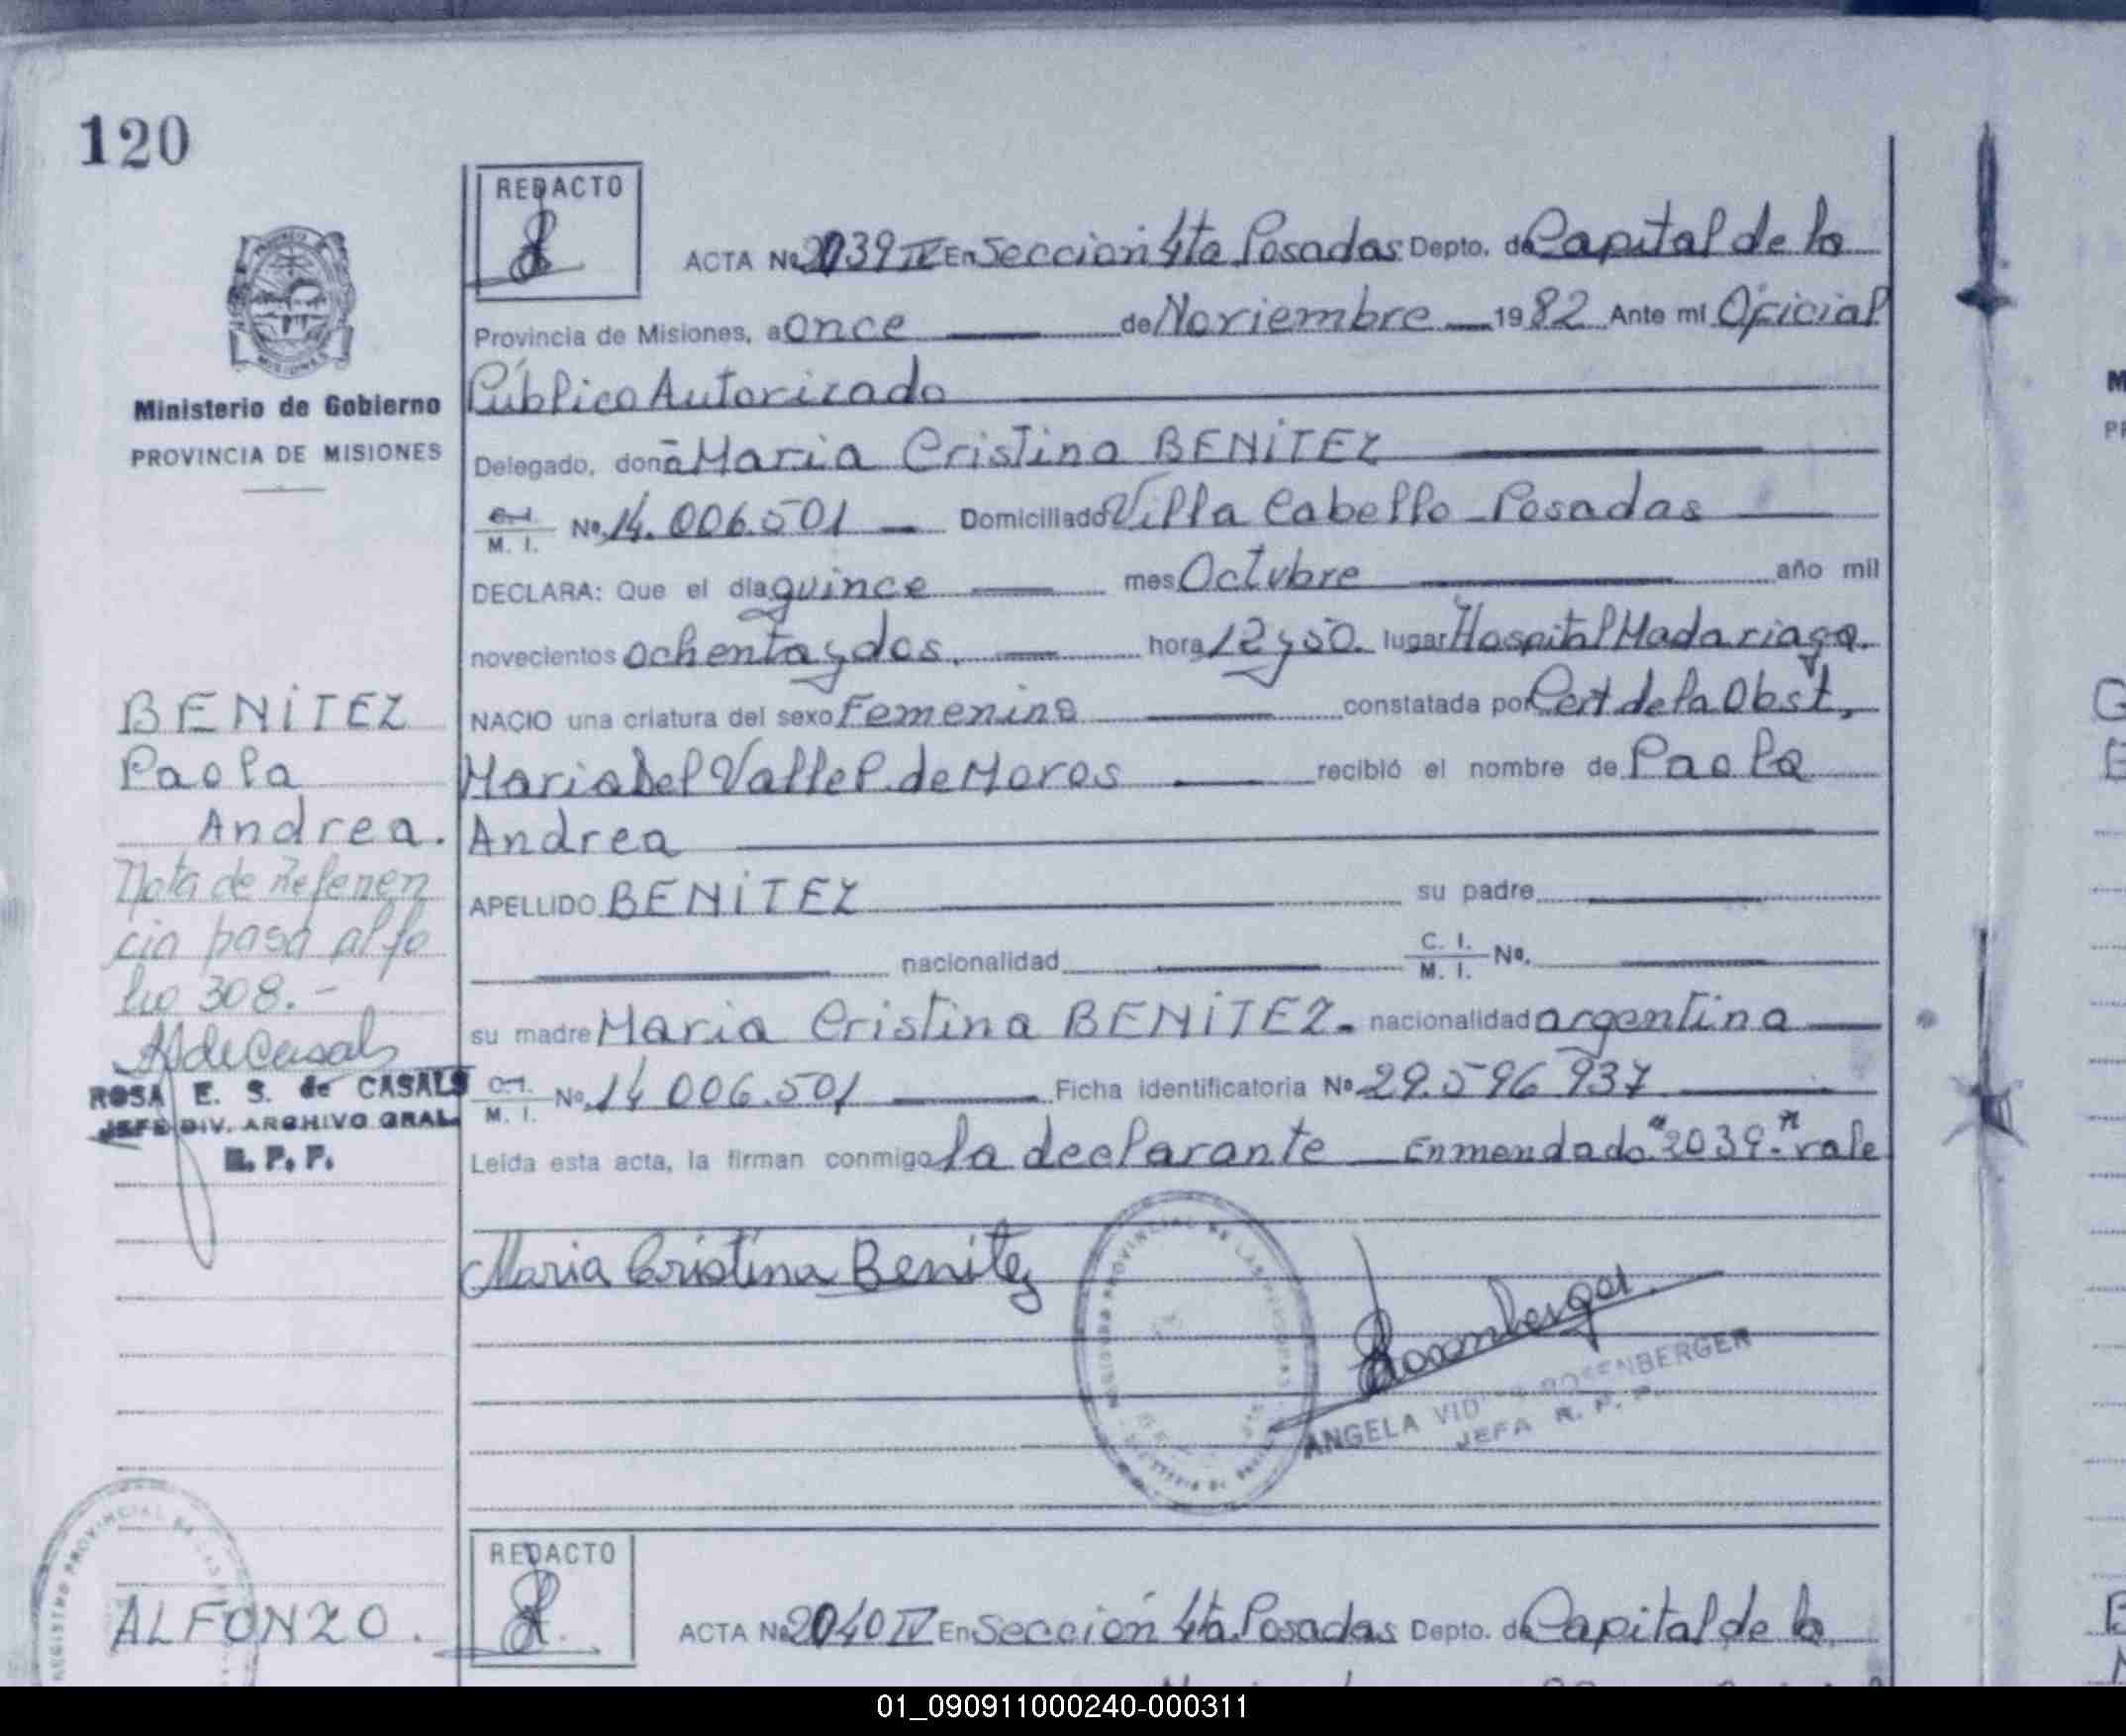 120
REDACTO
ACTA Nº 2039 IV En Sección 4ta Posadas Depto. de Capital de la
Provincia de Misiones, a once de Noviembre 1982 Ante mi Oficial
Público Autorizado
Ministerio de Gobierno
PROVINCIA DE MISIONES
Delegado, doña Maria Cristina BENITEZ
C.I. M. I. Nº 14.006.501 Domiciliado Villa Cabello - Posadas
DECLARA: Que el día quince mes Octubre año mil
novecientos ochenta y dos. hora 12 y 50. lugar Hospital Madariaga.
NACIO una criatura del sexo Femenino constatada por Cert de la Obst.
Maria del Valle P. de Moros recibió el nombre de Paola
Andrea
APELLIDO BENITEZ su padre
nacionalidad C. I. M. I. Nº.
su madre Maria Cristina BENITEZ. nacionalidad argentina
C.I. M. I. Nº 14 006.501 Ficha identificatoria Nº 29.596 937
Leída esta acta, la firman conmigo la declarante Enmendado "2039" vale
Maria Cristina Benitez
Rosenberger
ANGELA ROSENBERGER
JEFA R. P. P.
BENITEZ
Paola
Andrea.
Nota de Referen
cia pasa al fo
lio 308.-
de Casals
ROSA E. S. de CASALS
JEFE DIV. ARCHIVO GRAL.
R. P. P.
REGISTRO PROVINCIAL DE LAS PERSONAS
REGISTRO PROVINCIAL DE LAS
ALFONZO.
REDACTO
ACTA Nº 2040 IV En Sección 4ta. Posadas Depto. de Capital de la
01_090911000240-000311